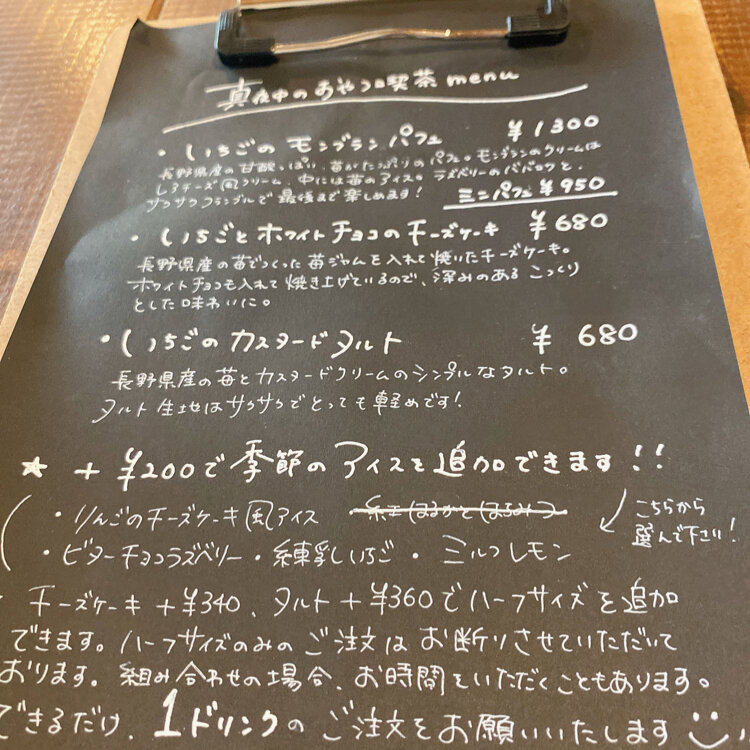 真夜中のおやつ喫茶 menu
・いちごの モンブラン パフェ ¥1300
長野県産の甘酸っぱい、苺がたっぷりのパフェ。モンブランのクリームは
レアチーズ風クリーム、中には苺のアイスの ラズベリーのババロアと、
サクサククランブルで 最後まで 楽しめます! ミニパフェ ¥950
・いちごとホワイトチョコのチーズケーキ ¥680
長野県産の苺でつくった苺ジャムを入れて焼いたチーズケーキ。
ホワイトチョコも入れて焼き上げているので、深みのある こっくり
とした味わいに。
・いちごの カスタードタルト ¥ 680
長野県産の苺とカスタードクリームのシンプルなタルト。
タルト生地はサクサクでとっても軽めです!
★ + ¥200で季節のアイスを追加できます!!
・りんごのチーズケーキ風アイス
こちらから
選んで下さい!
・ビターチョコラズベリー・練乳いちご・ミルクレモン
チーズケーキ+¥340、タルト+¥360でハーフサイズを追加
できます。ハーフサイズのみのご注文はお断りさせていただいて
おります。組み合わせの場合、お時間をいただくこともあります。
できるだけ、1ドリンクのご注文をお願いいたします